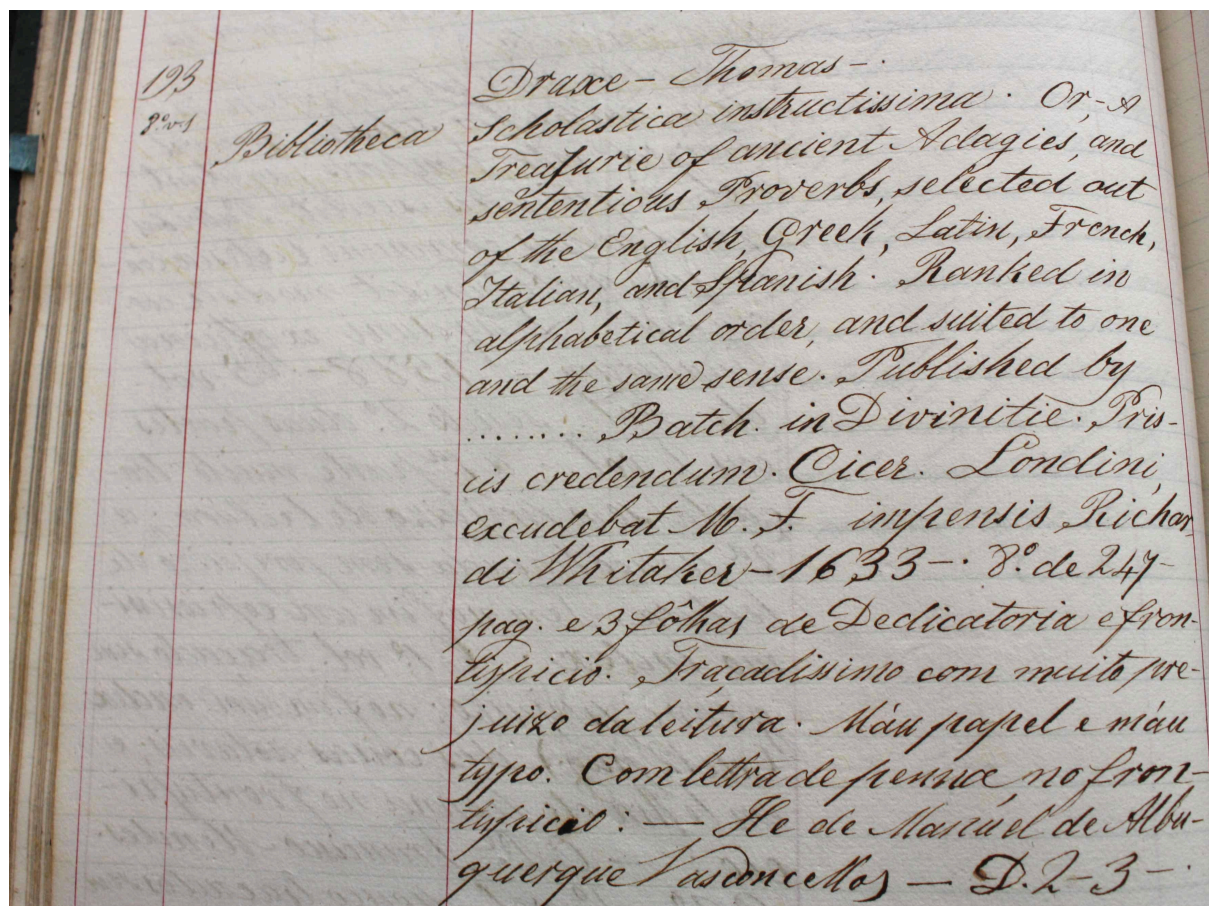 193
Draxe - Thomas -.
Bibliotheca
Scholastica instructissima. Or, - A
Treasurie of ancient Adagies, and
sententious Proverbs, selected out
of the English, Greek, Latin, French,
Italian, and Spanish. Ranked in
alphabetical order, and suited to one
and the same sense. Published by
........ Batch. in Divinitie. Pris-
cis credendum. Cicer. Londini,
excudebat M. F. impensis Richar
di Whitaker - 1633 -. 8.º de 247-
pag. e 3 fôlhas de Dedicatoria e fron-
tispicio. Traçadissimo com muito pre-
juizo da leitura. Máu papel e máu
typo. Com lettra de penna, no fron-
tispicio: — He de Manuel de Albu-
querque Vasconcellos — D. 2 - 3 -.